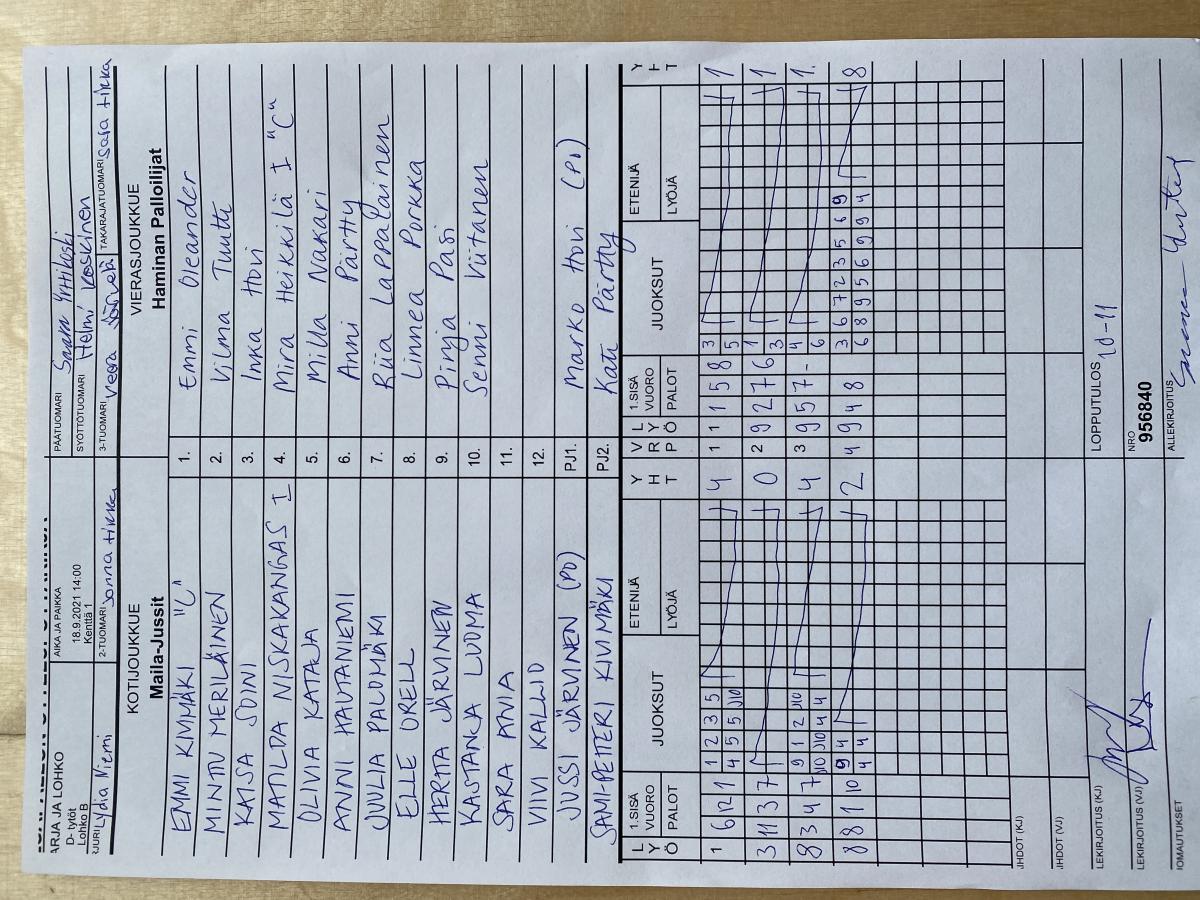 AIKA JA PAIKKA
PÄÄTUOMARI
D- tytöt
Lohko B
18.9.2021 14:00
Kenttä 1
SYÖTTÖTUOMARI Helmi Koskinen
Lydia Niemi
2-TUOMARI Sanna Hirkka
3-TUOMARI Veera
TAKARAJATUOMARI Sara Hirkka
KOTIJOUKKUE
VIERASJOUKKUE
Maila-Jussit
Haminan Palloilijat
EMMI KIVIMÄKI "C" 1. Emmi Oleander
MINTTU MERILÄINEN 2. Vilma Tuutti
KAISA SOINI 3. Inka Hovi
MATILDA NISKAKANGAS I 4. Mira Heikkilä I "C"
OLIVIA KATAJA 5. Milla Nakari
ANNI HAUTANIEMI 6. Anni Pärtty
JUULIA PALOMÄKI 7. Riia Lappalainen
ELLE ORELL 8. Linnea Porkka
HERTTA JÄRVINEN 9. Pinja Pasi
KASTANJA LUOMA 10. Senni Viitanen
SARA ARVIA 11.
VIIVI KALLIO 12.
JUSSI JÄRVINEN (PJ) PJ1. Marko Hovi (PJ)
SAMI-PETTERI KIVIMÄKI PJ2. Kati Pärtty
L Y Ö 1.SISÄ VUORO PALOT JUOKSUT ETENIJÄ LYÖJÄ Y H T V R P L Y Ö 1.SISÄ VUORO PALOT JUOKSUT ETENIJÄ LYÖJÄ Y H T
1 6 12 1 1 2 3 5 4 1 1 1 5 8 3 1
4 5 5 J10 5
3 11 3 7 0 2 9 2 7 6 1 1
3
8 3 4 7 9 1 2 J10 4 3 9 5 7 - 4 1
J10 J10 4 4 6
8 8 1 10 9 4 2 4 9 4 8 3 6 7 2 3 5 6 9 8
4 4 6 8 9 5 6 9 9 4
JHDOT (KJ)
JHDOT (VJ)
LEKIRJOITUS (KJ)
LOPPUTULOS 10-11
LEKIRJOITUS (VJ)
NRO
956840
IOMAUTUKSET
ALLEKIRJOITUS